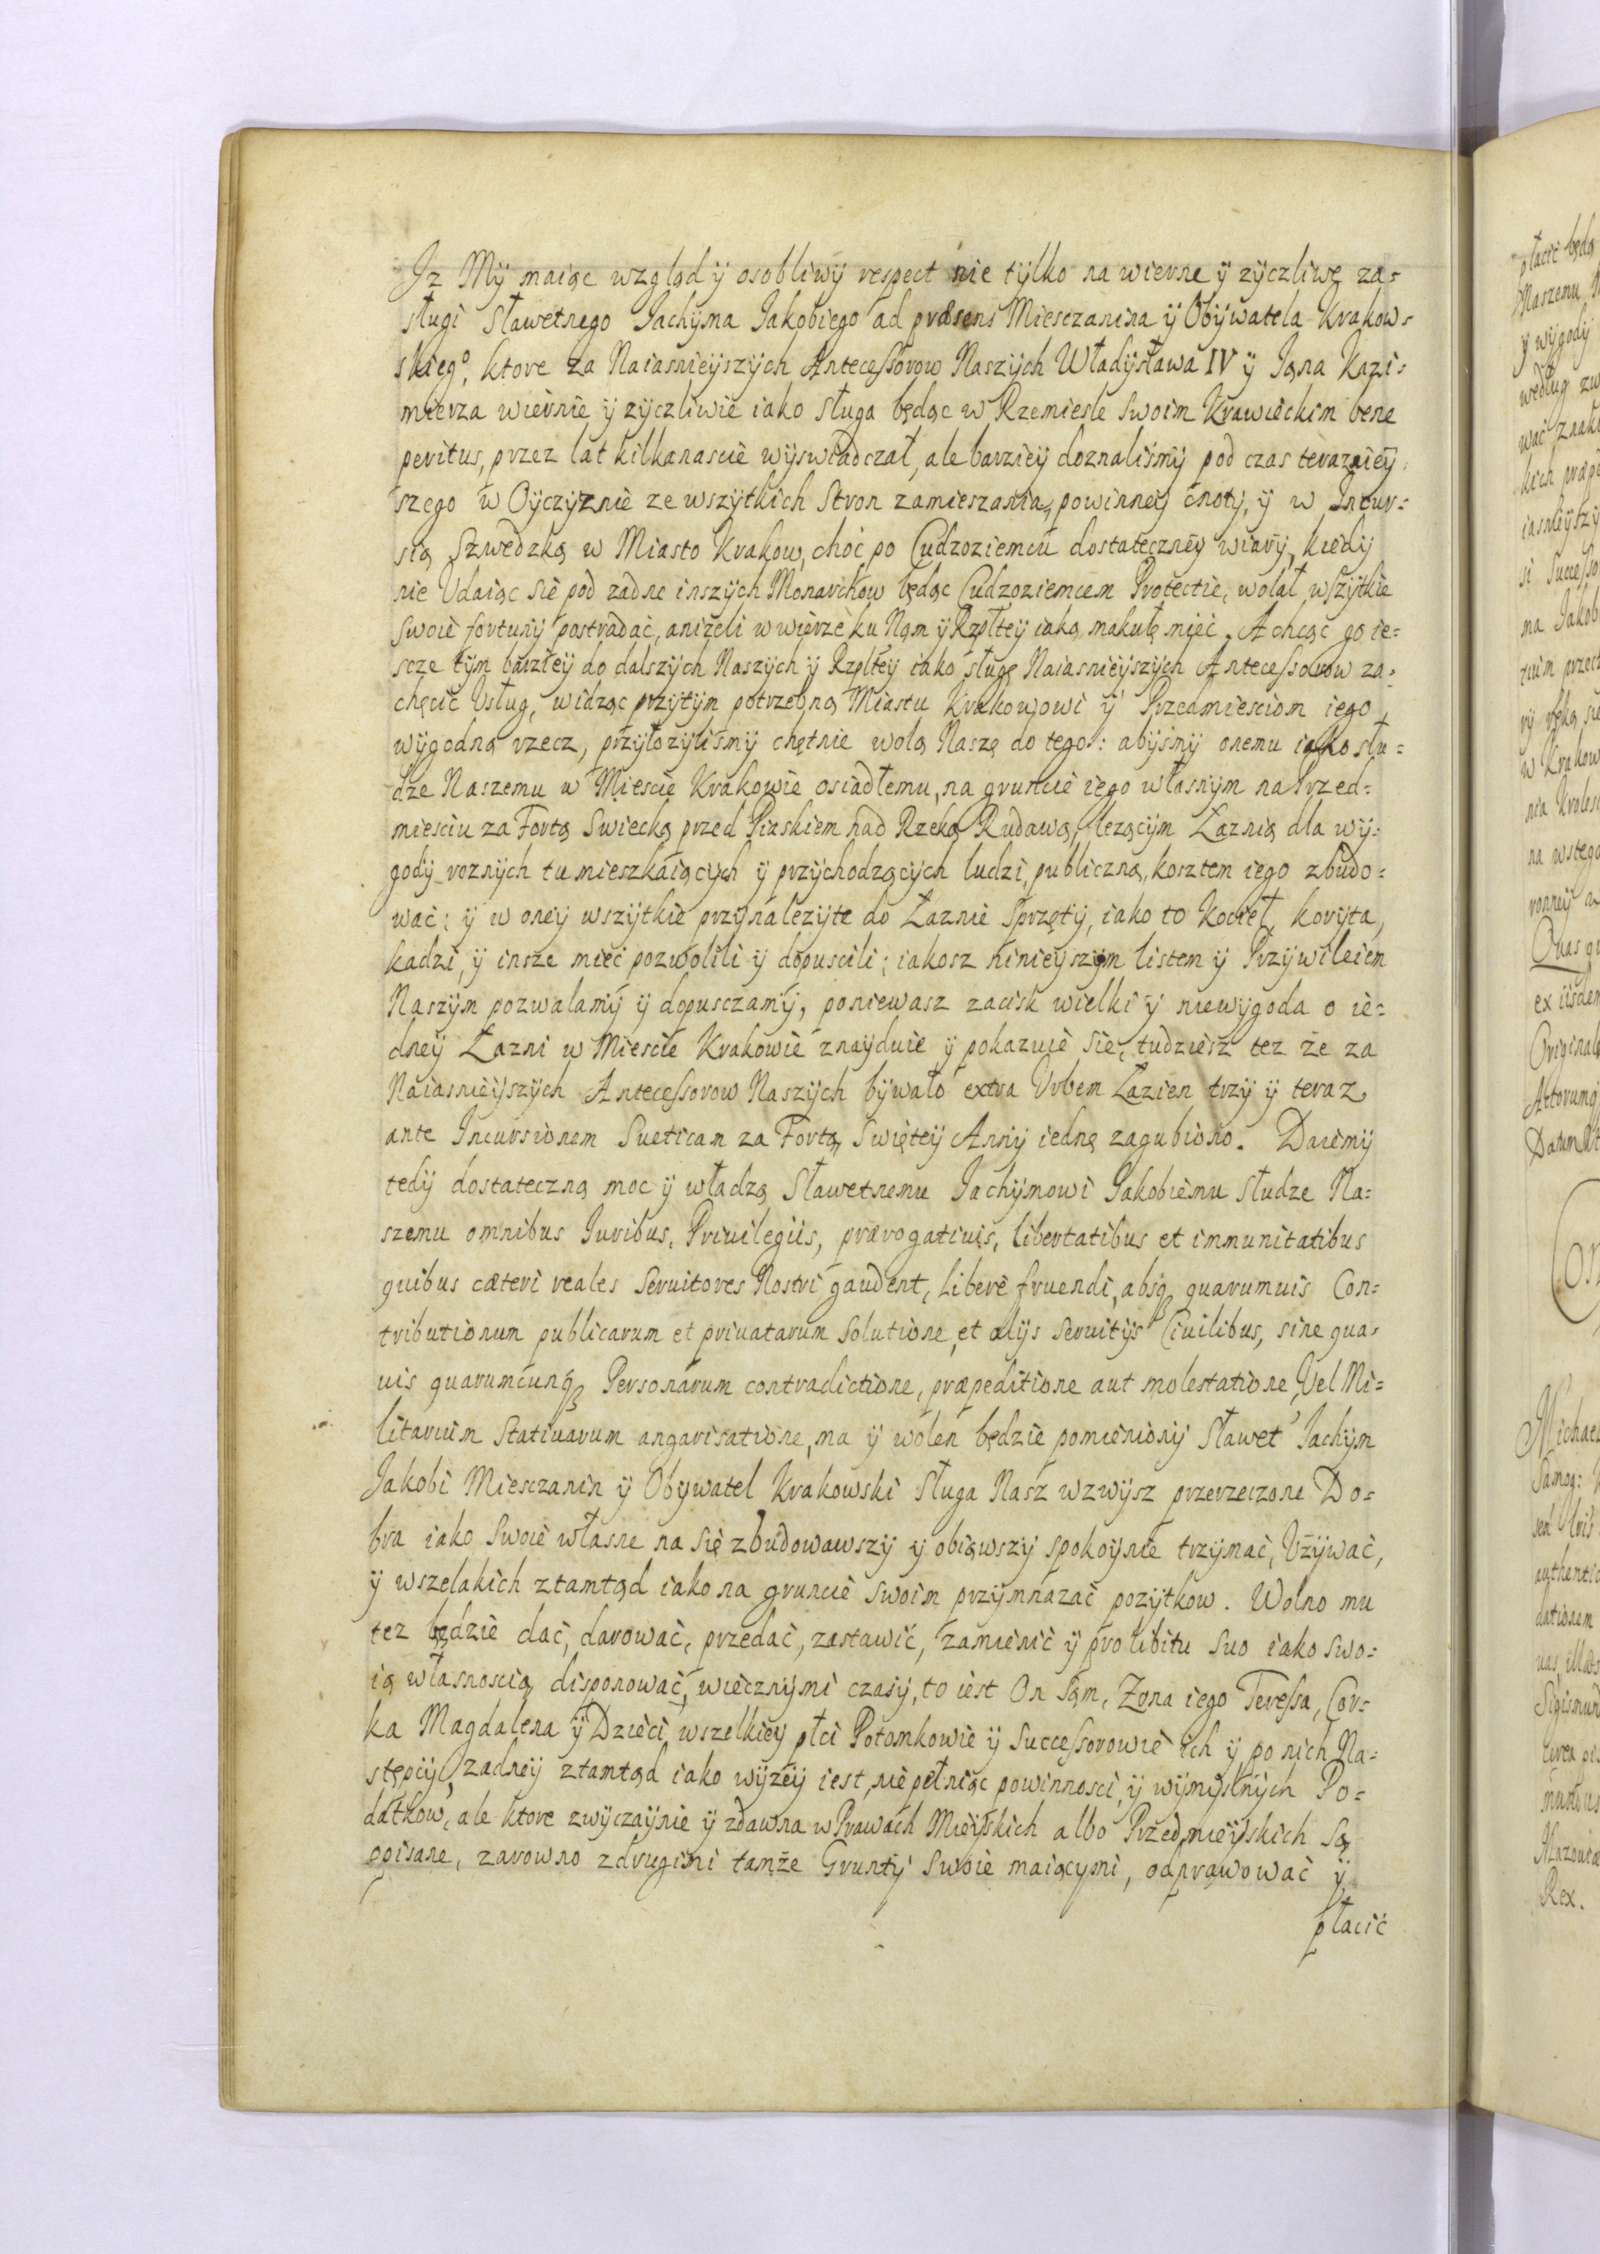 Iz My maiąc wzgląd ÿ osobliwÿ respect nie tÿlko na wierne ÿ zÿczliwe za-
sługi Sławetnego Jachÿma Jakobiego ad præsens Miesczanina ÿ Obÿwatela Krakow-
skieg°, ktore za Naiasnieÿszÿch Antecessorow Naszÿch Władÿsława IV ÿ Jana Kazi-
mierza wiernie ÿ zÿczliwie iako sługa będąc w Rzemiesle swoim Krawieckim bene
peritus, przez lat kilkanascie wÿswiadczał, ale barzieÿ doznalismÿ pod czas teraznieÿ-
szego w Oÿczÿznie ze wszÿtkich stron zamieszania, powinneÿ cnotÿ, ÿ w Incur-
sią Szwedzką w Miasto Krakow, choć po Cudzoziemcu dostateczneÿ wiarÿ, kiedÿ
nie Udaiąc sie pod zadne inszÿch Monarchow będąc Cudzoziemcem Protectie, wolał wszÿtkie
swoie fortunÿ postradać, anizeli w wierze ku Nam ÿ Rzpłteÿ iaką makułę mieć. A chcąc go ie-
scze tÿm barzieÿ do dalszÿch Naszÿch ÿ Rzpłteÿ iako sługę Naiasnieÿszÿch Antecessorow za-
chęcić Usług, widząc przÿtÿm potrzebną Miastu Krakowowi ÿ Przedmiesciom iego
wÿgodną rzecz, przÿłozÿlismÿ chętnie wolą Naszę do tego: abÿsmÿ onemu iako słu-
dze Naszemu w Miescie Krakowie osiadłemu, na gruncie iego własnÿm na Przed-
miesciu za Fortą Swiecką przed Piaskiem nad Rzeką Rudawą, lezącÿm Łaznią dla wÿ-
godÿ roznÿch tu mieszkaiącÿch ÿ przÿchodzącÿch ludzi, publiczną, kosztem iego zbudo-
wać; ÿ w oneÿ wszÿtkie przÿnalezÿte do Łaznie Sprzętÿ, iako to Kocieł, korÿta,
kadzi, ÿ insze mieć pozwolili ÿ dopuscili; iakosz ninieÿszÿm listem ÿ Przÿwileiem
Naszÿm pozwalamÿ ÿ dopusczamÿ, poniewasz zacisk wielki ÿ niewÿgoda o ie-
dneÿ Łazni w Miescie Krakowie znaÿduie ÿ pokazuie sie, tudziesz tez że za
Naiasnieÿszÿch Antecessorow Naszÿch bÿwało extra Urbem Łazien trzÿ ÿ teraz
ante Incursionem Sueticam za Fortą Swięteÿ Annÿ iednę zagubiono. Daiemÿ
tedÿ dostateczną moc ÿ władzą Sławetnemu Jachÿmowi Jakobiemu słudze Na-
szemu omnibus Iuribus, Priuilegiis, prærogatiuis, libertatibus et immunitatibus
quibus cæteri reales Seruitores Nostri gaudent, liberè fruendi, absq quarumuis Con-
tributionum publicarum et priuatarum solutione, et alÿs seruitÿs Ciuilibus, sine qua-
uis quarumcunq Personarum contradictione, præpeditione aut molestatione, Vel Mi-
litarium Statiuarum angarisatione, ma ÿ wolen będzie pomienionÿ Sławet' Jachÿm
Jakobi Miesczanin ÿ Obÿwatel Krakowski Sługa Nasz wzwÿsz przerzeczone Do-
bra iako swoie własne na się zbudowawszÿ ÿ obiąwszÿ spokoÿnie trzÿmać, Uzÿwać,
ÿ wszelakich ztamtąd iako na gruncie swoim przÿmnazać pozÿtkow. Wolno mu
tez będzie dać, darować, przedać, zastawić, zamienić ÿ pro libitu suo iako swo-
ią własnoscią disponować, wiecznÿmi czasÿ, to iest On sąm, Zona iego Teressa, Cor-
ka Magdalena ÿ Dzieci wszelkieÿ płci Potomkowie ÿ Successorowie ich ÿ po nich Na-
stępcÿ, zadneÿ ztamtąd iako wÿzeÿ iest, nie pełniąc powinnosci, ÿ wÿmÿslnÿch Po-
datkow, ale ktore zwÿczaÿnie ÿ zdawna w Prawach Mieÿskich albo Przedmieÿskich są
opisane, zarowno z drugimi tamże Gruntÿ swoie maiącymi, odprawować ÿ
płacić